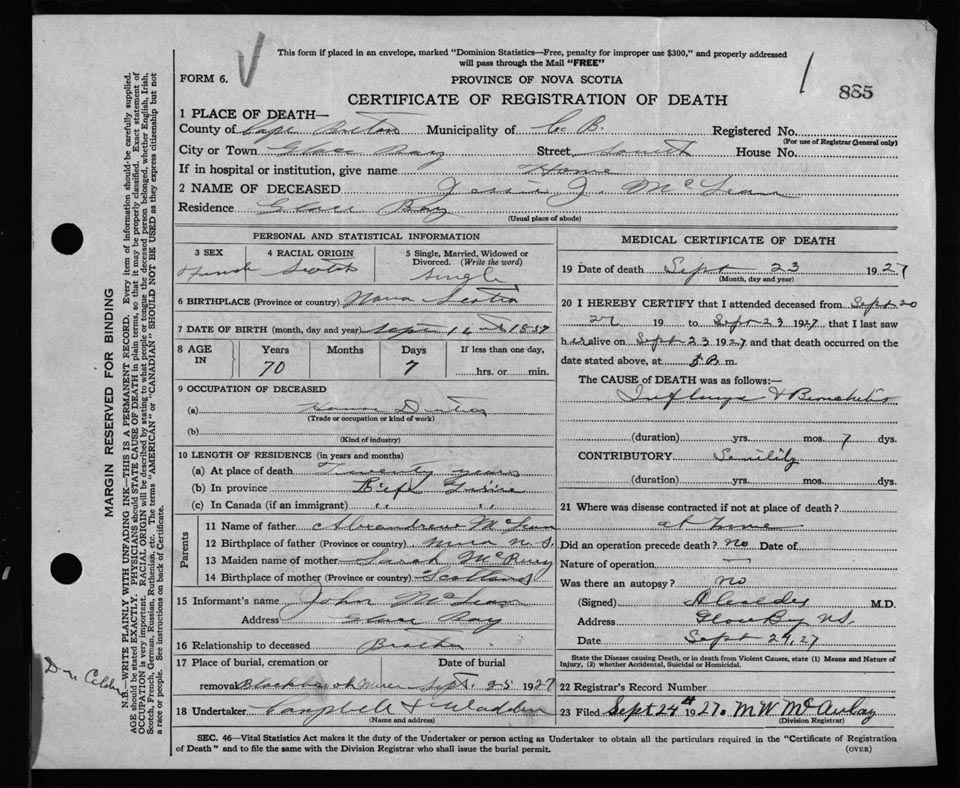 This form if placed in an envelope, marked "Dominion Statistics—Free, penalty for improper use $300," and properly addressed
will pass through the Mail "FREE"
FORM 6.
PROVINCE OF NOVA SCOTIA
885
CERTIFICATE OF REGISTRATION OF DEATH
1 PLACE OF DEATH—
County of Cape Breton Municipality of C. B. Registered No.
(For use of Registrar General only)
City or Town Glace Bay Street South House No.
If in hospital or institution, give name Home
2 NAME OF DECEASED Jessie J. McLean
Residence Glace Bay
(Usual place of abode)
PERSONAL AND STATISTICAL INFORMATION
3 SEX 4 RACIAL ORIGIN 5 Single, Married, Widowed or
Divorced. (Write the word)
Scotch Single
6 BIRTHPLACE (Province or country) Nova Scotia
7 DATE OF BIRTH (month, day and year) Sept 16 1857
8 AGE IN Years Months Days If less than one day,
70 7 hrs. or min.
9 OCCUPATION OF DECEASED
(a) House Duties
(Trade or occupation or kind of work)
(b)
(Kind of industry)
10 LENGTH OF RESIDENCE (in years and months)
(a) At place of death Twenty years
(b) In province
(c) In Canada (if an immigrant) " "
Parents
11 Name of father McLean
12 Birthplace of father (Province or country) Mira N.S.
13 Maiden name of mother Sarah
14 Birthplace of mother (Province or country) Scotland
15 Informant's name John McLean
Address Glace Bay
16 Relationship to deceased Brother
17 Place of burial, cremation or Date of burial
removal Sept. 25 1927
18 Undertaker Campbell & Wadden
(Name and address)
MEDICAL CERTIFICATE OF DEATH
19 Date of death Sept 23 1927
(Month, day and year)
20 I HEREBY CERTIFY that I attended deceased from Sept 20
27 19 to Sept 23 1927 that I last saw
her alive on Sept 23 1927 and that death occurred on the
date stated above, at m.
The CAUSE OF DEATH was as follows:—
Influenza & Bronchitis
(duration) yrs. mos. 7 dys.
CONTRIBUTORY Senility
(duration) yrs. mos. dys.
21 Where was disease contracted if not at place of death?
at home
Did an operation precede death? no Date of
Nature of operation —
Was there an autopsy? no
(Signed) M.D.
Address Glace Bay N.S.
Date Sept 24, 27
State the Disease causing Death, or in death from Violent Causes, state (1) Means and Nature of
Injury, (2) whether Accidental, Suicidal or Homicidal.
22 Registrar's Record Number
23 Filed Sept 27th 1927. M W McAulay
(Division Registrar)
SEC. 46—Vital Statistics Act makes it the duty of the Undertaker or person acting as Undertaker to obtain all the particulars required in the "Certificate of Registration
of Death" and to file the same with the Division Registrar who shall issue the burial permit. (OVER)
MARGIN RESERVED FOR BINDING
N.B.—WRITE PLAINLY WITH UNFADING INK—THIS IS A PERMANENT RECORD. Every item of information should be carefully supplied.
AGE should be stated EXACTLY. PHYSICIANS should STATE CAUSE OF DEATH in plain terms, so that it may be properly classified. Exact statement of
OCCUPATION is very important. RACIAL ORIGIN will be described by stating to what people or tongue the deceased person belonged, whether English, Irish,
Scotch, French, German, Russian, Ruthenian, etc. The terms "AMERICAN" or "CANADIAN" SHOULD NOT BE USED as they express citizenship but not
a race or people. See instructions on back of Certificate.